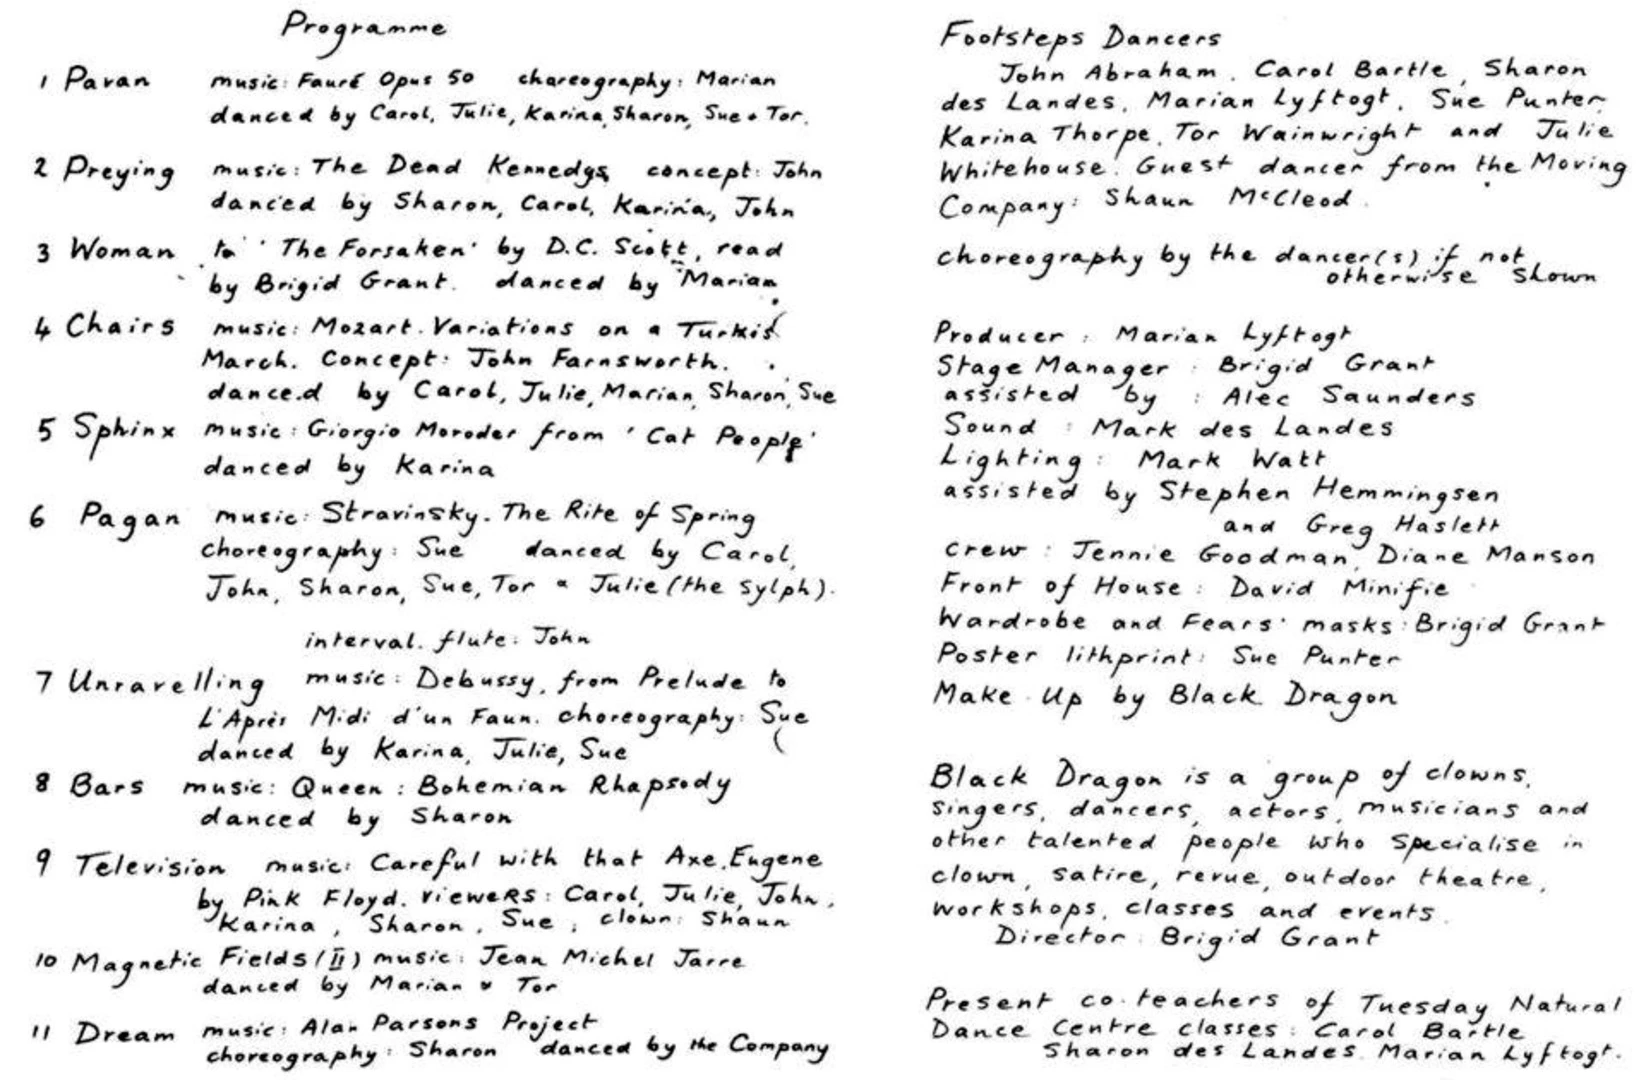 Programme
1 Pavan music: Fauré Opus 50 choreography: Marian
danced by Carol, Julie, Karina, Sharon, Sue + Tor.
2 Preying music: The Dead Kennedys concept: John
danced by Sharon, Carol, Karina, John
3 Woman to 'The Forsaken' by D.C. Scott, read
by Brigid Grant. danced by Marian
4 Chairs music: Mozart. Variations on a Turkish
March. Concept: John Farnsworth.
danced by Carol, Julie, Marian, Sharon, Sue
5 Sphinx music: Giorgio Moroder from 'Cat People'
danced by Karina
6 Pagan music: Stravinsky. The Rite of Spring
choreography: Sue danced by Carol,
John, Sharon, Sue, Tor & Julie (the sylph).
interval. flute: John
7 Unravelling music: Debussy, from Prelude to
L'Après Midi d'un Faun. choreography: Sue
danced by Karina, Julie, Sue
8 Bars music: Queen: Bohemian Rhapsody
danced by Sharon
9 Television music: Careful with that Axe, Eugene
by Pink Floyd. viewers: Carol, Julie, John,
Karina, Sharon, Sue, clown: Shaun
10 Magnetic Fields (II) music: Jean Michel Jarre
danced by Marian & Tor
11 Dream music: Alan Parsons Project
choreography: Sharon danced by the Company
Footsteps Dancers
John Abraham, Carol Bartle, Sharon
des Landes, Marian Lyftogt, Sue Punter,
Karina Thorpe, Tor Wainwright and Julie
Whitehouse. Guest dancer from the Moving
Company: Shaun McCleod.
choreography by the dancer(s) if not
otherwise shown
Producer: Marian Lyftogt
Stage Manager: Brigid Grant
assisted by: Alec Saunders
Sound: Mark des Landes
Lighting: Mark Watt
assisted by Stephen Hemmingsen
and Greg Haslett
crew: Jennie Goodman, Diane Manson
Front of House: David Minifie
Wardrobe and Fears' masks: Brigid Grant
Poster lithprint: Sue Punter
Make-Up by Black Dragon
Black Dragon is a group of clowns,
singers, dancers, actors, musicians and
other talented people who specialise in
clown, satire, revue, outdoor theatre,
workshops, classes and events.
Director: Brigid Grant
Present co-teachers of Tuesday Natural
Dance Centre classes: Carol Bartle
Sharon des Landes. Marian Lyftogt.